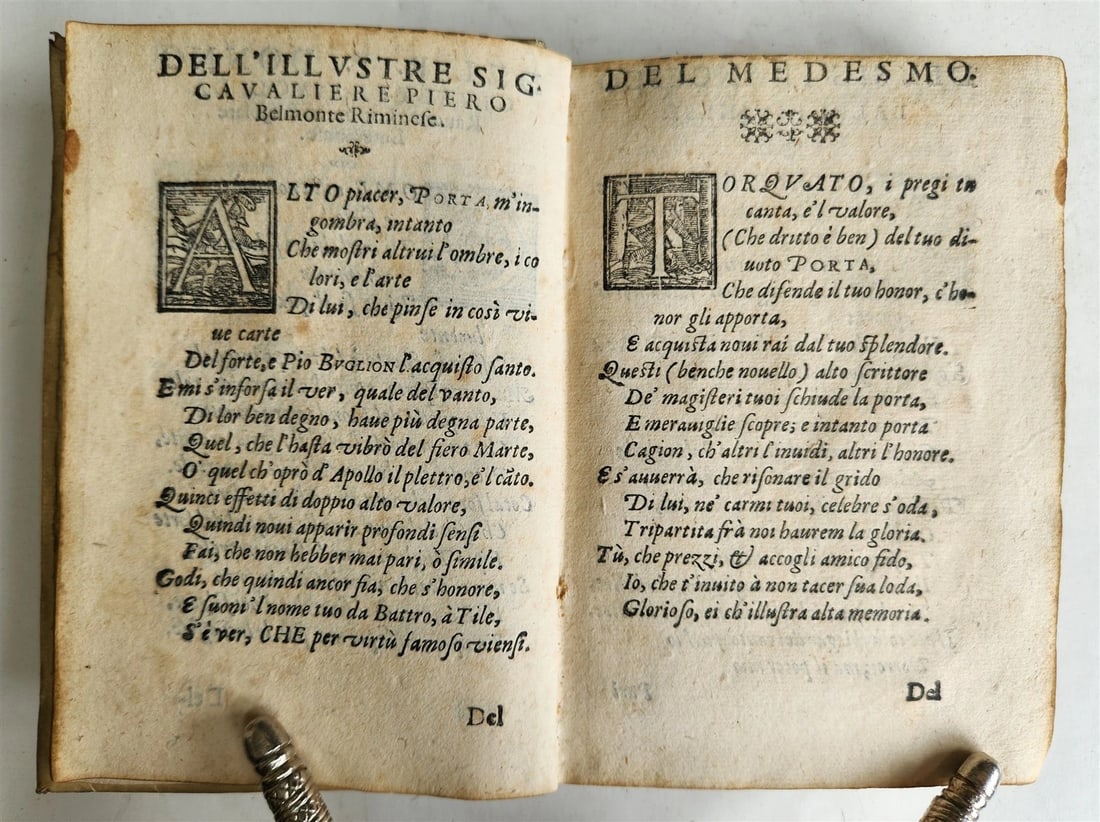 DELL'ILLVSTRE SIG.
CAVALIERE PIERO
Belmonte Riminese.
ALTO piacer, PORTA, m'in-
gombra, intanto
Che mostri altrui l'ombre, i co
lori, e l'arte
Di lui, che pinse in così vi-
ue carte
Del forte, e Pio BVGLION l'acquisto santo.
E mi s'inforsa il ver, quale del vanto,
Di lor ben degno, haue più degna parte,
Quel, che l'hasta vibrò del fiero Marte,
O' quel ch'oprò d'Apollo il plettro, e'l cãto.
Quinci effetti di doppio alto valore,
Quindi noui apparir profondi sensi
Fai, che non hebber mai pari, ò simile.
Godi, che quindi ancor fia, che s'honore,
E suoni 'l nome tuo da Battro, à Tile,
S'è ver, CHE per virtù famoso viensi.
Del
DEL MEDESMO.
TORQVATO, i pregi tu
canta, e'l valore,
(Che dritto è ben) del tuo di-
uoto PORTA,
Che difende il tuo honor, c'ho-
nor gli apporta,
E acquista noui rai dal tuo splendore.
Questi (benche nouello) alto scrittore
De' magisteri tuoi schiude la porta,
E merauiglie scopre; e intanto porta
Cagion, ch'altri l'inuidi, altri l'honore.
E s'auuerrà, che risonare il grido
Di lui, ne' carmi tuoi, celebre s'oda,
Tripartita frà noi haurem la gloria.
Tù, che prezzi, & accogli amico fido,
Io, che t'inuito à non tacer sua loda,
Glorioso, ei ch'illustra alta memoria.
Del